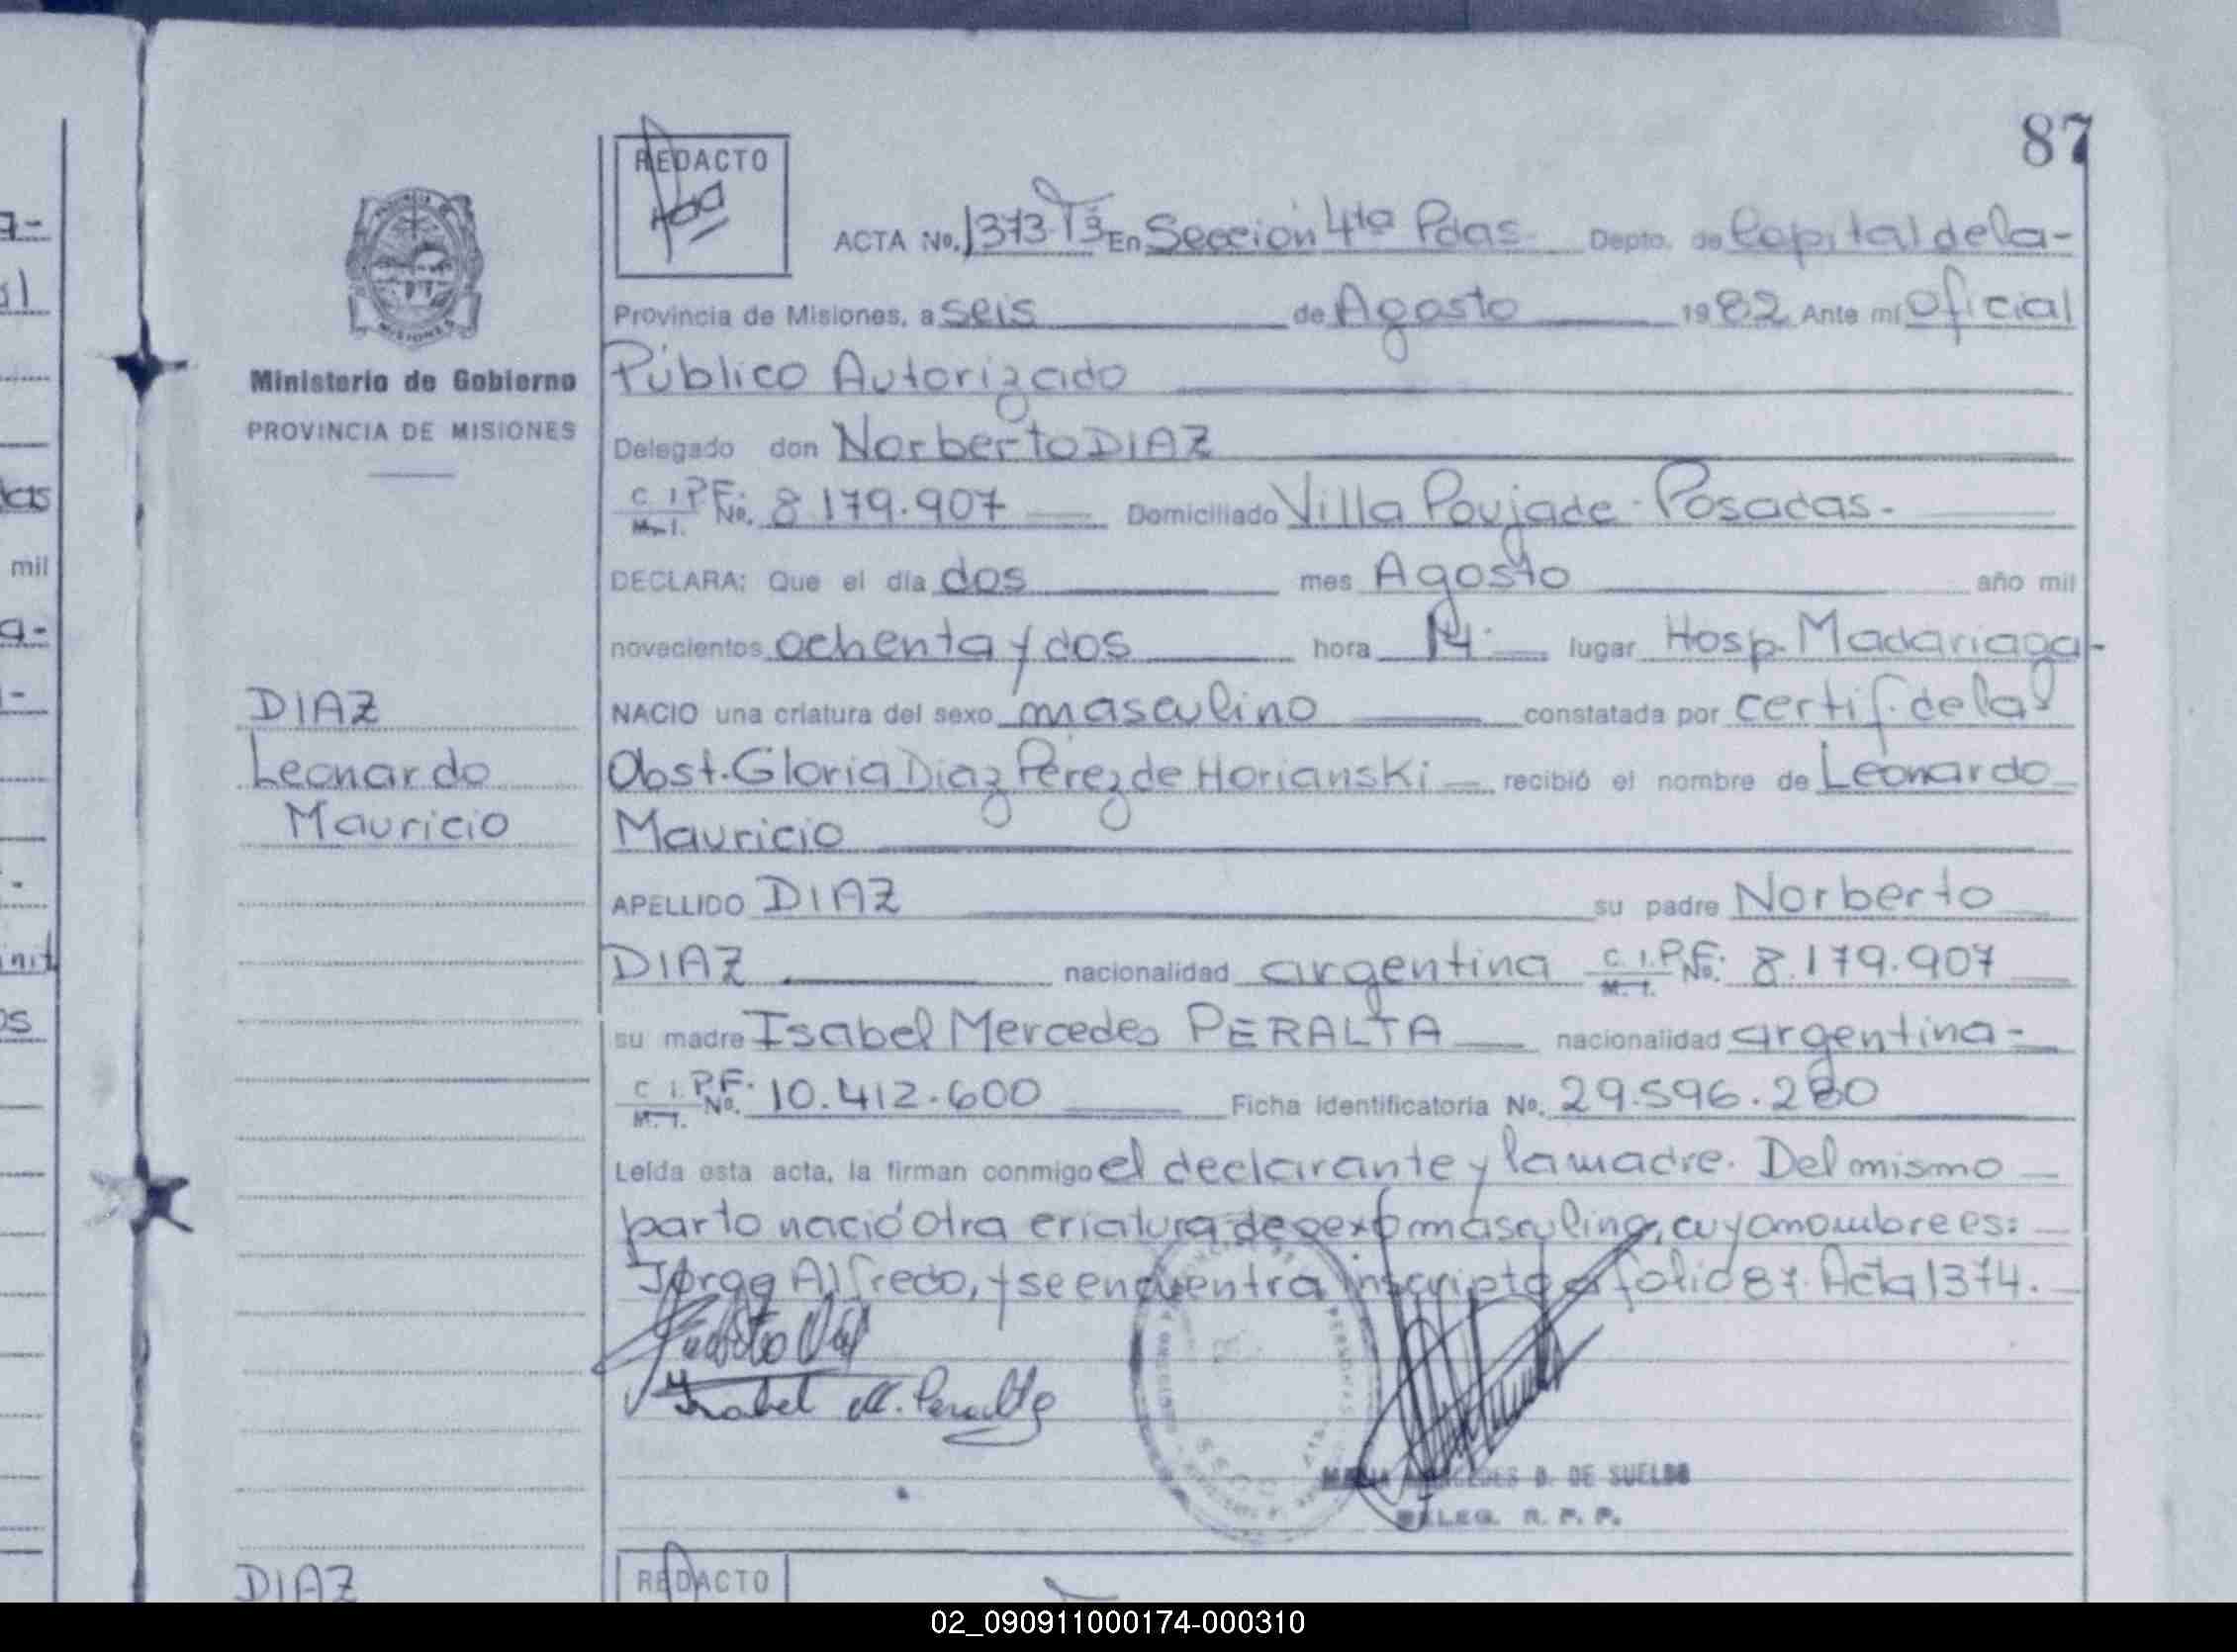 87
REDACTO
ACTA No. 1373 T3 En Sección 4ta Pdas Depto. de Capital de la-
Provincia de Misiones, a seis de Agosto 1982 Ante mí Oficial
Ministerio de Gobierno
Público Autorizado
PROVINCIA DE MISIONES
Delegado don Norberto DIAZ
C. I. P.F. M. I. No. 8.179.907 Domiciliado Villa Poujade - Posadas.-
DECLARA: Que el día dos mes Agosto año mil
novecientos ochenta y dos hora 14 lugar Hosp. Madariaga-
DIAZ
Leonardo
Mauricio
NACIO una criatura del sexo masculino constatada por certif. de la
Obst. Gloria Diaz Pérez de Horianski recibió el nombre de Leonardo
Mauricio
APELLIDO DIAZ su padre Norberto
DIAZ nacionalidad argentina C. I. P.F. M. I. No. 8.179.907
su madre Isabel Mercedes PERALTA nacionalidad argentina-
C. I. P.F. M. I. No. 10.412.600 Ficha identificatoria No. 29.596.280
Leída esta acta, la firman conmigo el declarante y la madre. Del mismo
parto nació otra criatura de sexo masculino, cuyo nombre es:
Jorge Alfredo, y se encuentra inscripto a folio 87. Acta 1374.
Isabel M. Peralta
MARIA MERCEDES B. DE SUELDO
DELEG. R. P. P.
DIAZ
REDACTO
02_090911000174-000310